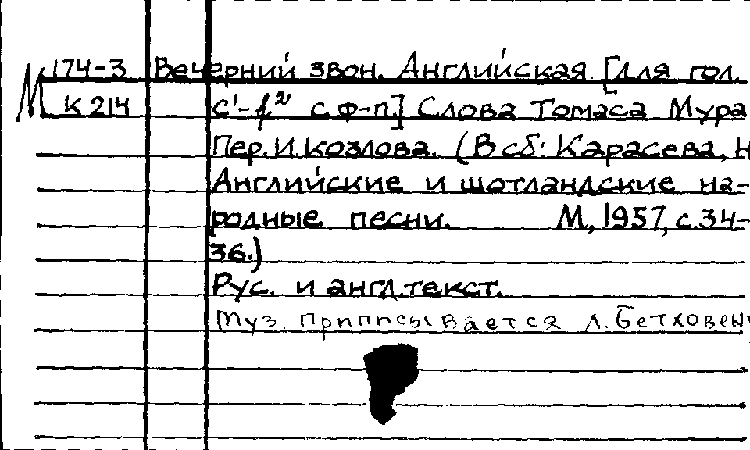 М 174-3 Вечерний звон. Английская [Для гол.
К 214 с¹-f² с ф-п.] Слова Томаса Мура
Пер. И. Козлова. (В сб: Карасева, Н
Английские и шотландские на-
родные песни. М, 1957, с. 34-
36.)
Рус. и англ. текст.
Муз. приписывается Л. Бетховену